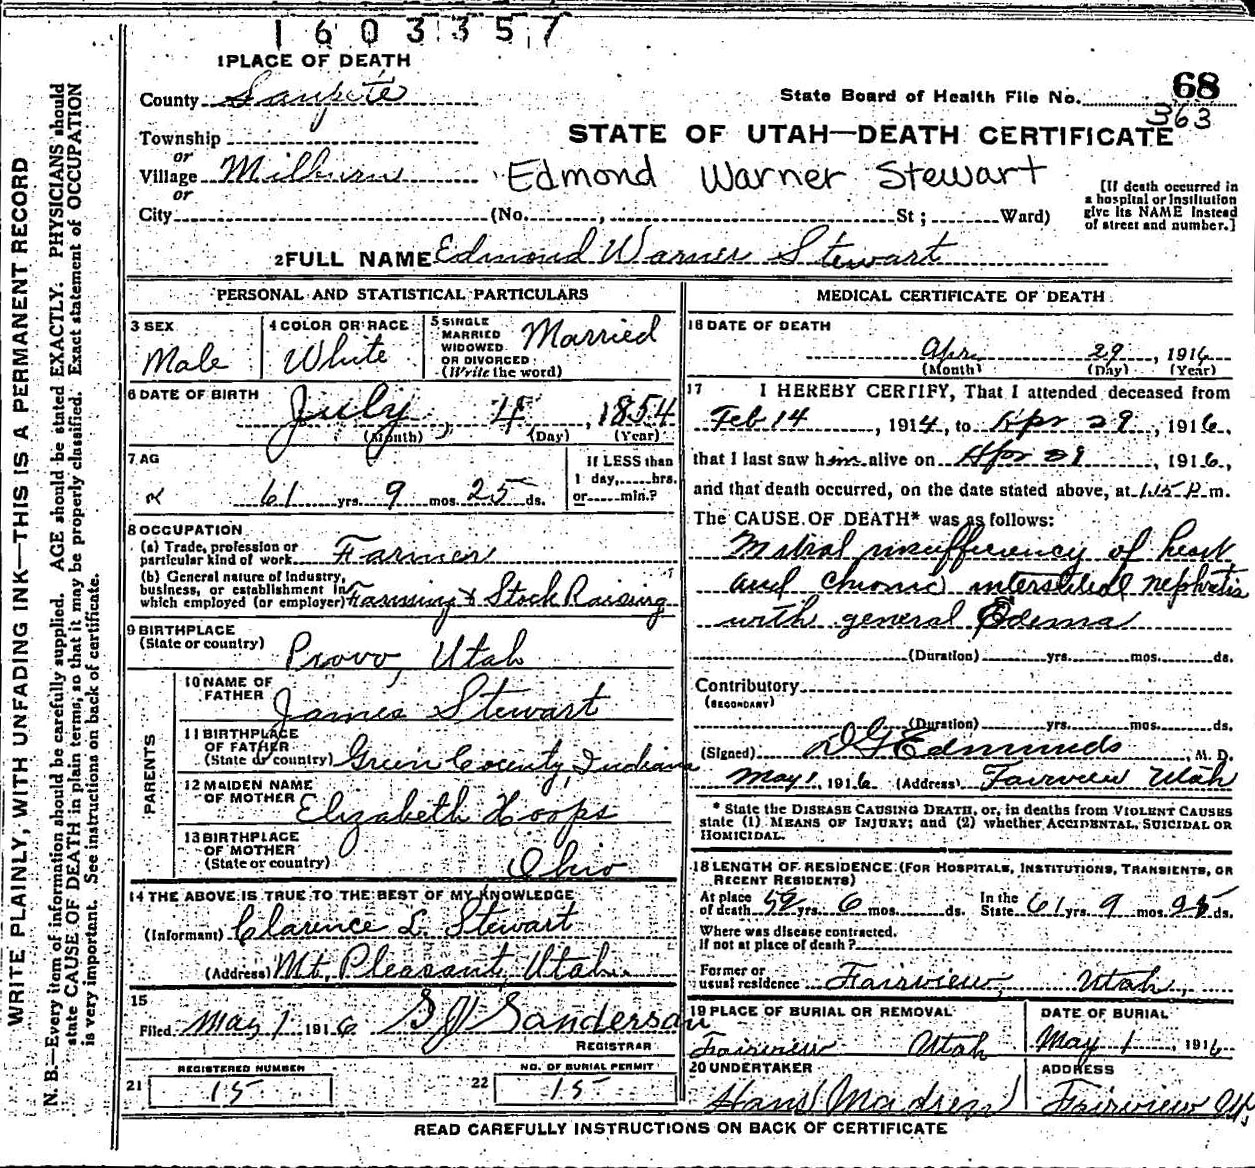 1603357
1 PLACE OF DEATH
County Sanpete
State Board of Health File No. 68
363
Township
or
Village Milburn
or
City (No. , St ; Ward)
STATE OF UTAH—DEATH CERTIFICATE
Edmond Warner Stewart
[If death occurred in
a hospital or institution
give its NAME instead
of street and number.]
2 FULL NAME Edmond Warner Stewart
PERSONAL AND STATISTICAL PARTICULARS
3 SEX
Male
4 COLOR OR RACE
White
5 SINGLE
MARRIED
WIDOWED
OR DIVORCED
(Write the word)
Married
6 DATE OF BIRTH
July 4, 1854
(Month) (Day) (Year)
7 AG
61 yrs. 9 mos. 25 ds.
If LESS than
1 day, hrs.
or min.?
8 OCCUPATION
(a) Trade, profession or
particular kind of work Farmer
(b) General nature of Industry,
business, or establishment in
which employed (or employer) Farming & Stock Raising
9 BIRTHPLACE
(State or country)
Provo, Utah
PARENTS
10 NAME OF
FATHER
James Stewart
11 BIRTHPLACE
OF FATHER
(State of country) Green County, Indiana
12 MAIDEN NAME
OF MOTHER
Elizabeth Hoops
13 BIRTHPLACE
OF MOTHER
(State or country)
Ohio
14 THE ABOVE IS TRUE TO THE BEST OF MY KNOWLEDGE
(Informant) Clarence L. Stewart
(Address) Mt. Pleasant, Utah.
15
Filed May 1 1916 S J Sanderson
REGISTRAR
21 REGISTERED NUMBER
15
22 NO. OF BURIAL PERMIT
15
MEDICAL CERTIFICATE OF DEATH
16 DATE OF DEATH
Apr. 29, 1916
(Month) (Day) (Year)
17 I HEREBY CERTIFY, That I attended deceased from
Feb 14, 1914, to Apr 29, 1916,
that I last saw him alive on Apr 29, 1916,
and that death occurred, on the date stated above, at 1.15 P. m.
The CAUSE OF DEATH* was as follows:
Mitral insufficiency of heart
and chronic interstitial nephritis
with general Edema
(Duration) yrs. mos. ds.
Contributory
(SECONDARY)
(Duration) yrs. mos. ds.
(Signed) D G Edmunds, M. D.
May 1, 1916 (Address) Fairview Utah
* State the DISEASE CAUSING DEATH, or, in deaths from VIOLENT CAUSES
state (1) MEANS OF INJURY; and (2) whether ACCIDENTAL, SUICIDAL OR
HOMICIDAL.
18 LENGTH OF RESIDENCE (FOR HOSPITALS, INSTITUTIONS, TRANSIENTS, OR
RECENT RESIDENTS)
At place
of death yrs. 6 mos. ds.
In the
State 61 yrs. 9 mos. 25 ds.
Where was disease contracted.
If not at place of death?
Former or
usual residence Fairview, Utah,
19 PLACE OF BURIAL OR REMOVAL
Fairview Utah
DATE OF BURIAL
May 1, 1916
20 UNDERTAKER
Hans
ADDRESS
Fairview
READ CAREFULLY INSTRUCTIONS ON BACK OF CERTIFICATE
WRITE PLAINLY, WITH UNFADING INK—THIS IS A PERMANENT RECORD
N. B.—Every item of information should be carefully supplied. AGE should be stated EXACTLY. PHYSICIANS should
state CAUSE OF DEATH in plain terms, so that it may be properly classified. Exact statement of OCCUPATION
is very important. See instructions on back of certificate.